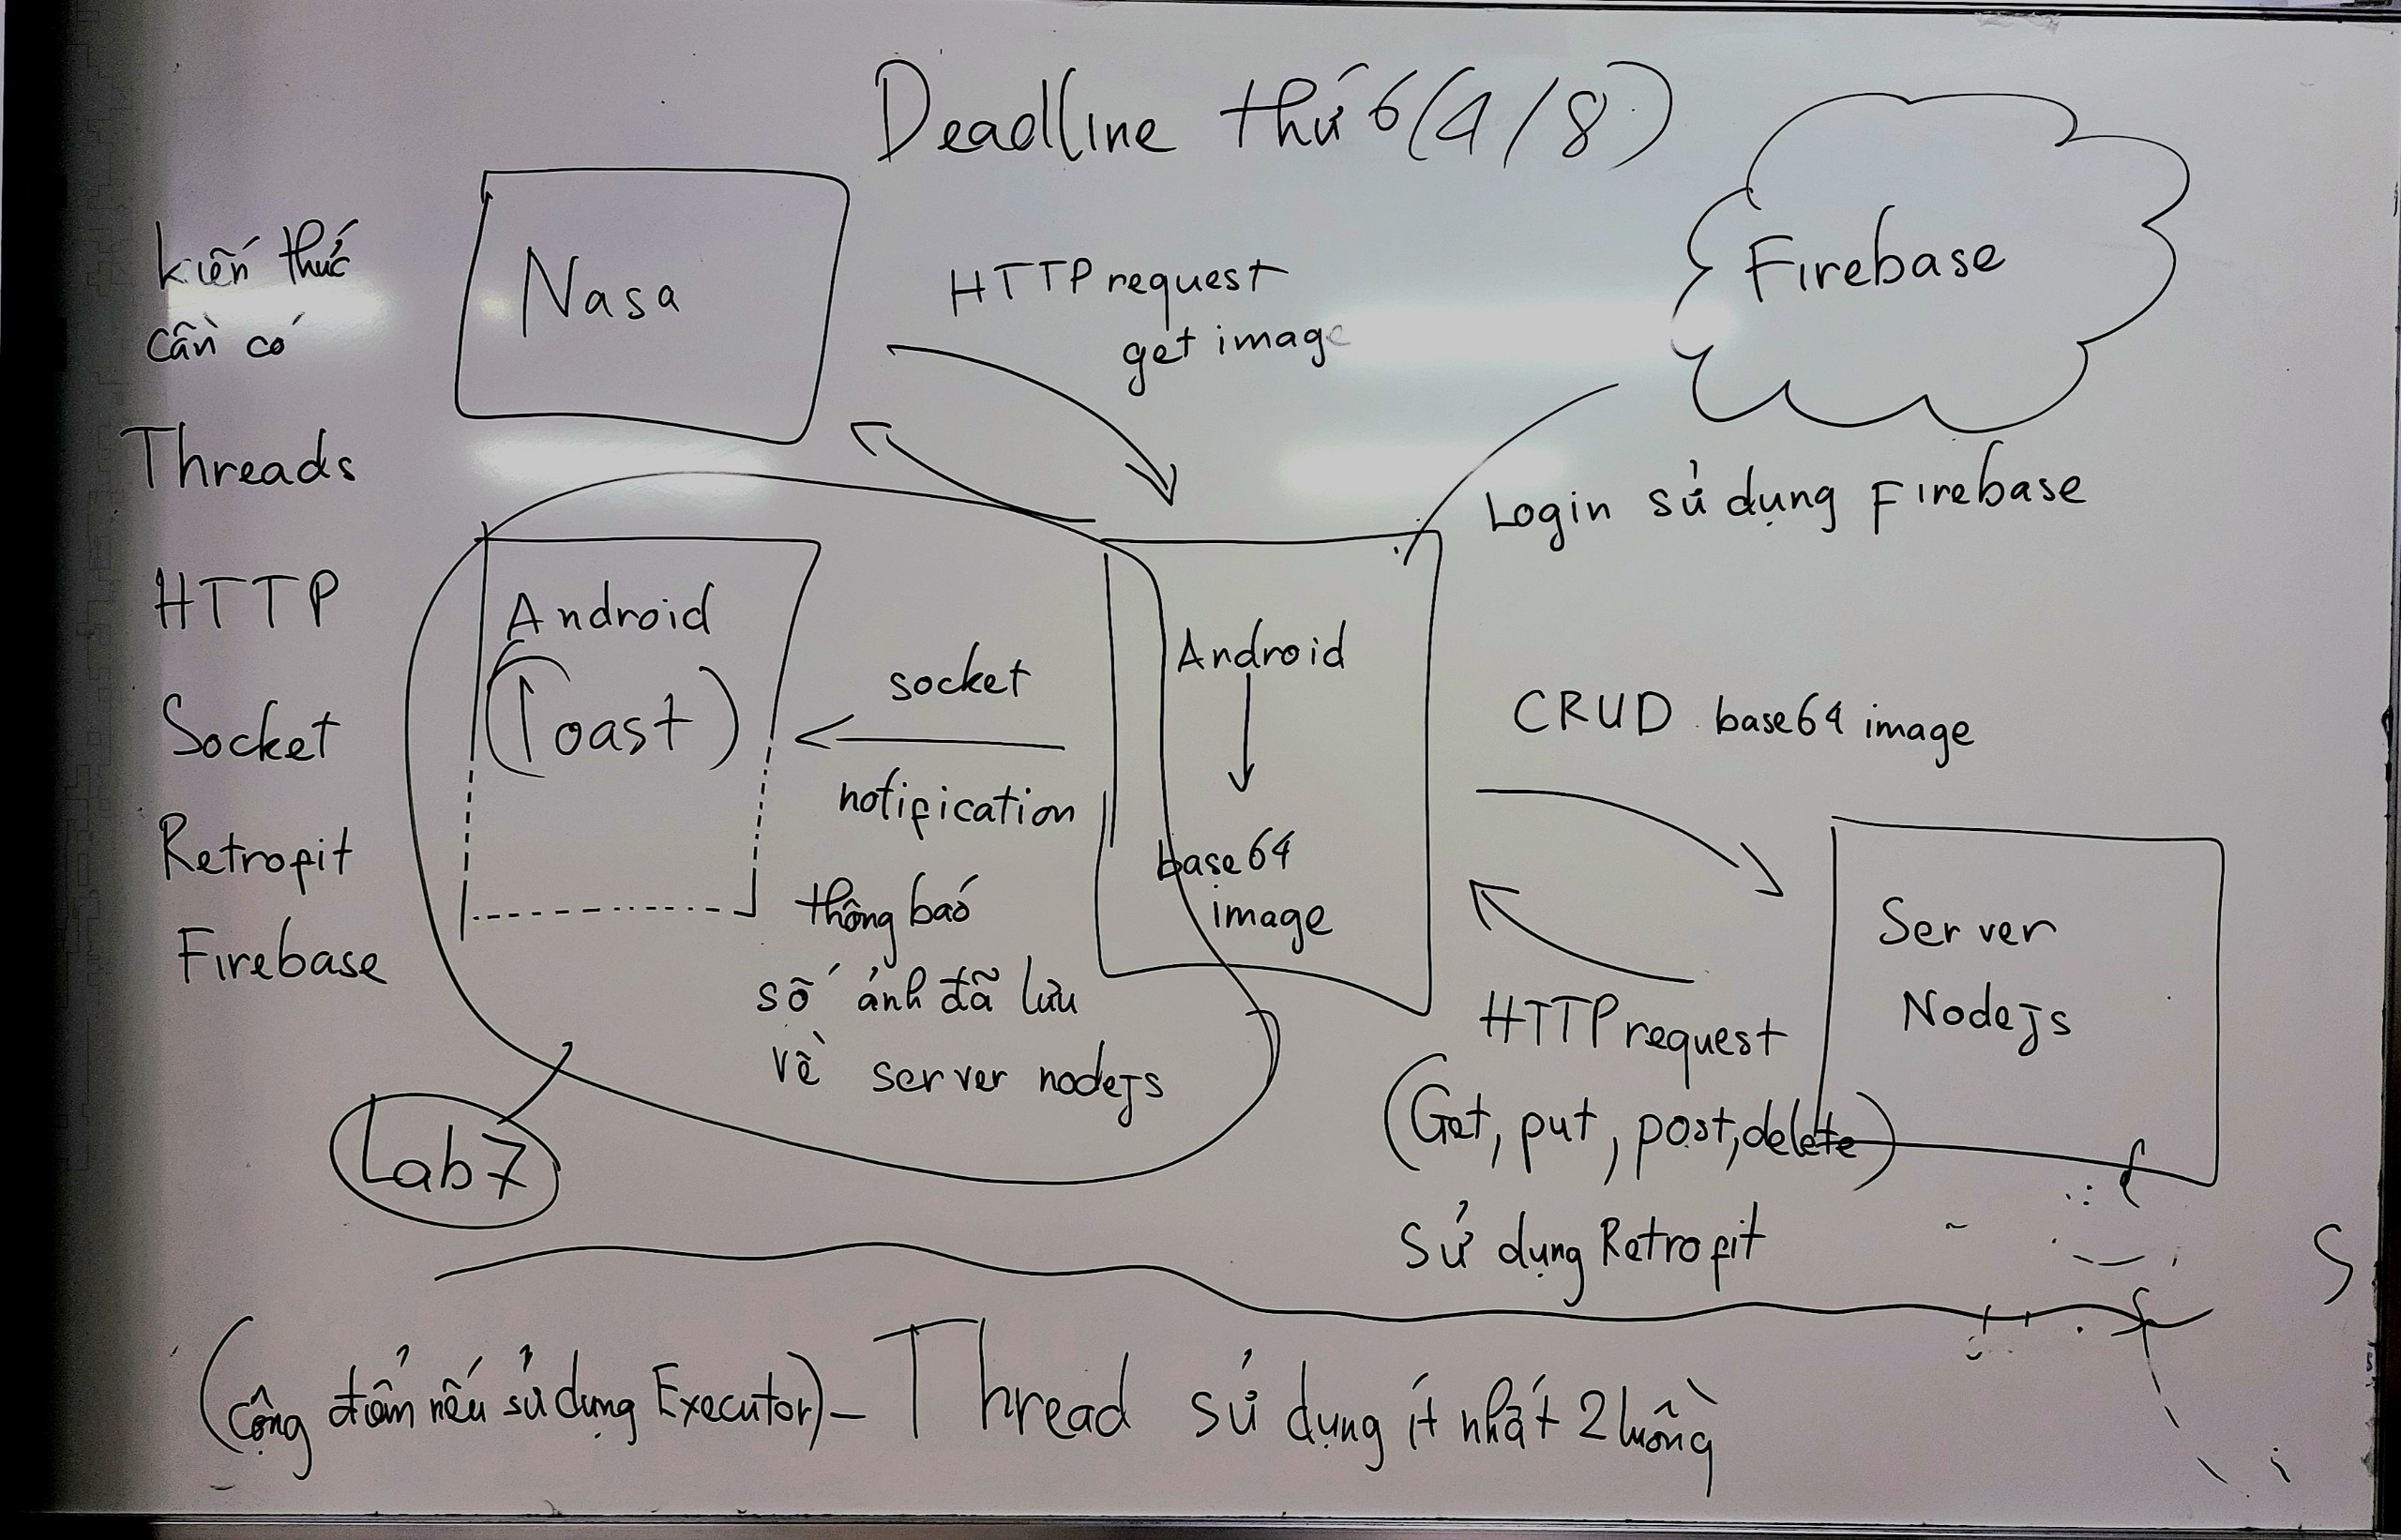 Deadline thứ 6 (4/8)
kiến thức
cần có
Threads
HTTP
Socket
Retrofit
Firebase
Nasa
HTTP request
get image
Firebase
Login sử dụng Firebase
Android
(Toast)
socket
notification
thông báo
số ảnh đã lưu
về server nodejs
Lab 7
Android
base64
image
CRUD base64 image
Server
Nodejs
HTTP request
(Get, put, post, delete)
Sử dụng Retrofit
(cộng điểm nếu sử dụng Executor) - Thread sử dụng ít nhất 2 luồng